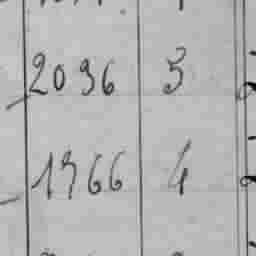 2096 5
1766 4